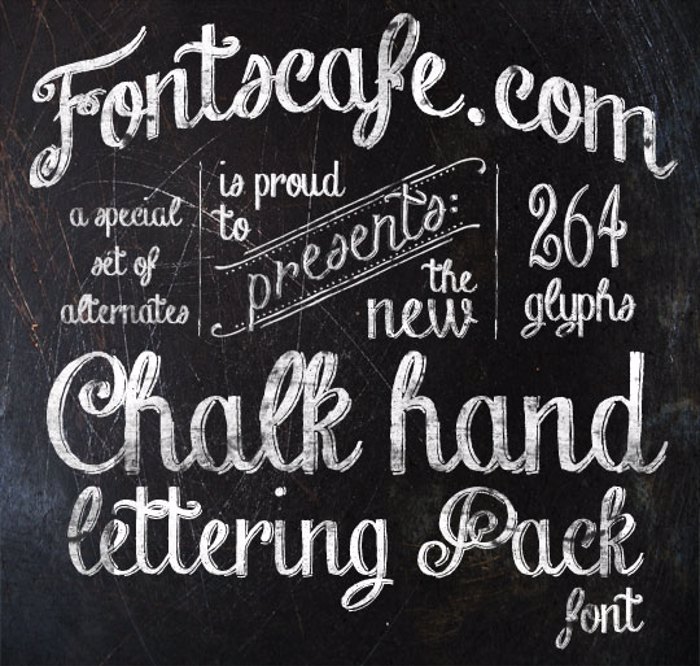 Fontscafe.com
is proud
to
presents:
the
new
a special
set of
alternates
264
glyphs
Chalk hand
lettering Pack
font